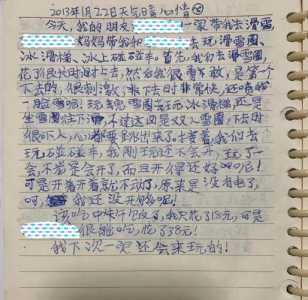 2013年1月22日天气晴心情
今天,我的朋友一家带我去滑雪,
妈妈带我和去玩滑雪圈、
冰滑梯、冰上碰碰车。首先,我们去滑雪圈,
花了很长时间上去,然后我很勇敢,是第一个
下去的,很刺激,滑下去时非常快,还喷我
一脸雪呢!玩完雪圈去玩冰滑梯,还是
坐雪圈往下滑,不过这回是双人雪圈,下去时
很吓人,心都要跳出来了。接着,我们去
玩碰碰车,我刚开始还不会开,玩了一
会,不知怎么会开了,而且开得还好呢!
可是开着开着就不动了,原来是没电了,
哼,我还没开够呢!
该吃中午饭了,我只花了18元,可是
很能吃,花了38元!
我下次一定还会来玩的!